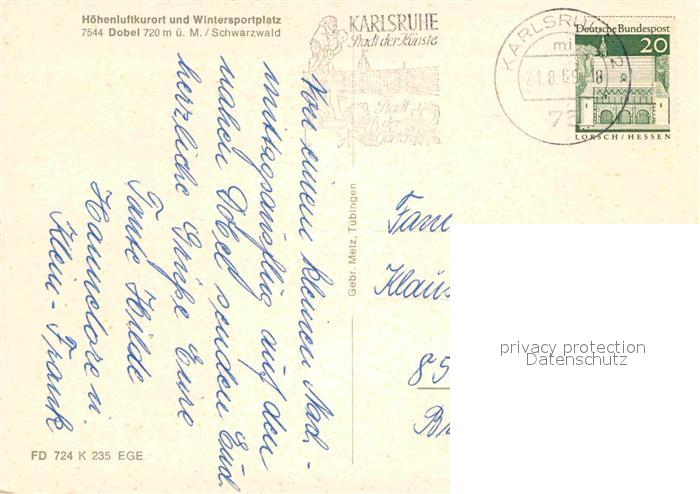 Höhenluftkurort und Wintersportplatz
7544 Dobel 720 m ü. M. / Schwarzwald
KARLSRUHE
Stadt der Künste
Stadt
der
Gärten
KARLSRUHE 2
21.8.69-18
Deutsche Bundespost
20
LORSCH/HESSEN
Von einem kleinen Nach-
mittagsausflug auf den
nahen Dobel senden Euch
herzliche Grüße Eure
Tante Hilde
Hannelore u.
Klein-Frank
Gebr. Metz, Tübingen
Fam
Klaus
85
FD 724 K 235 EGE
privacy protection
Datenschutz